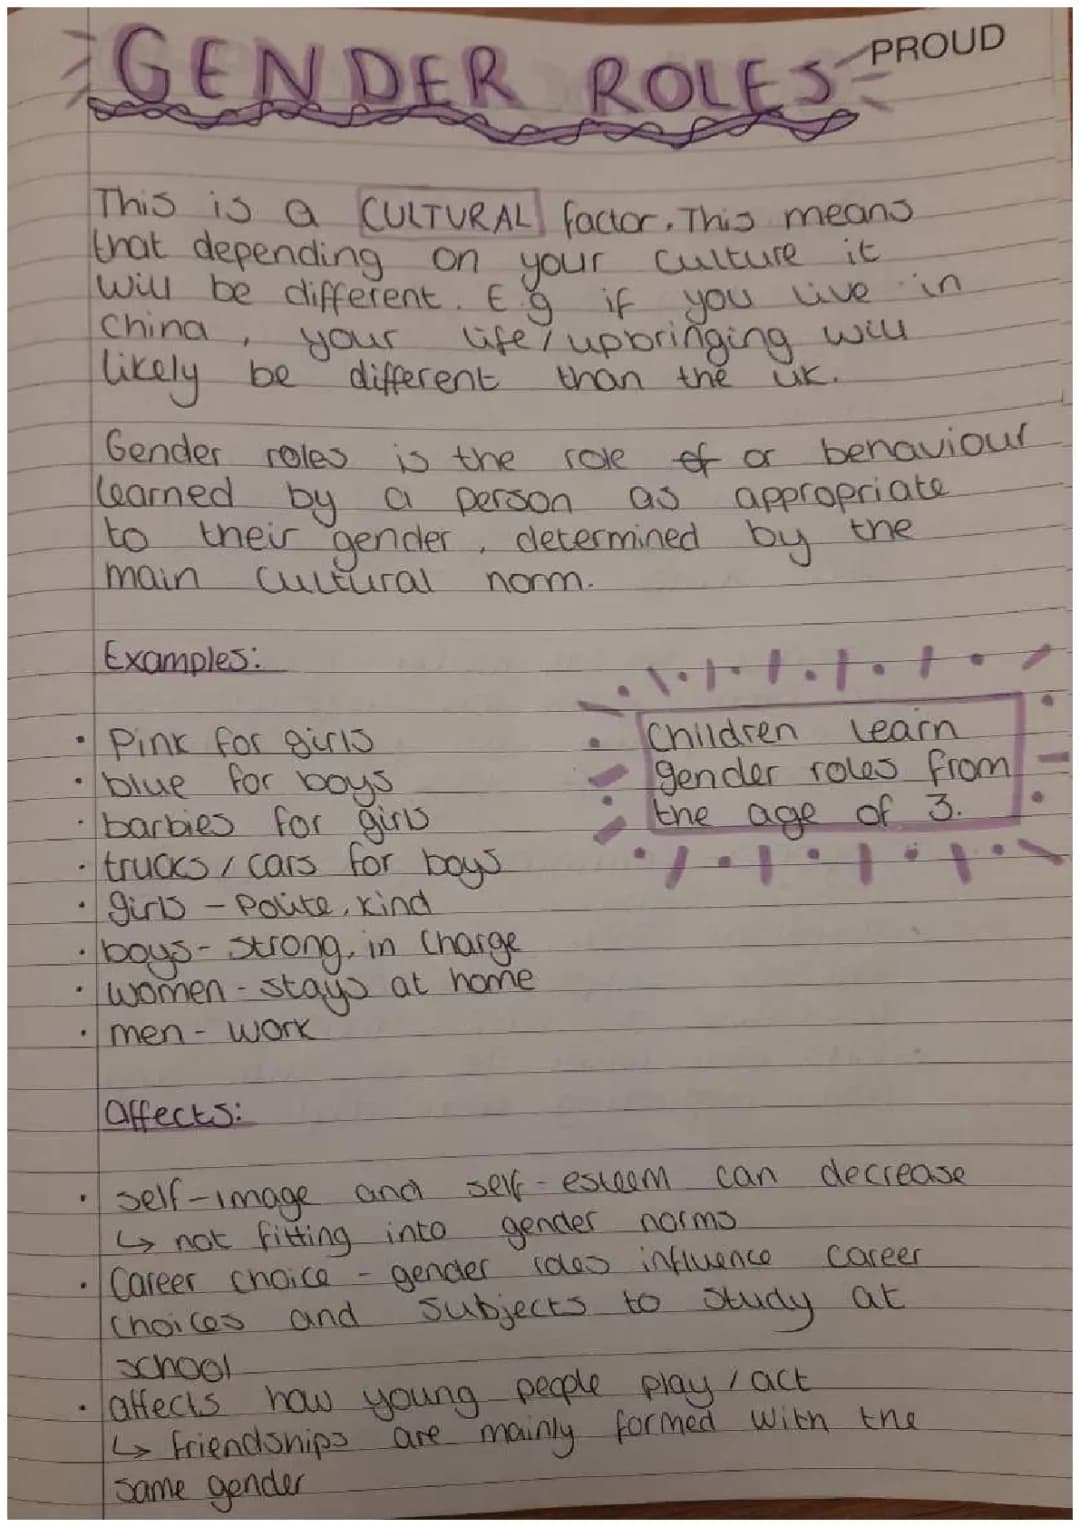 GENDER ROLES
PROUD
This is a CULTURAL factor. This means
that depending on your culture it
will be different. E.g if you live in
China, your life/upbringing will
likely be different than the UK.
Gender roles is the role of or behaviour
learned by a person as appropriate
to their gender, determined by the
main cultural norm.
Examples:
• Pink for girls
• blue for boys
• barbies for girls
• trucks/cars for boys
• girls - Polite, kind
• boys - strong, in charge
• women - stays at home
• men - work
Children learn
gender roles from
the age of 3.
Affects:
• self-image and self-esteem can decrease
↳ not fitting into gender norms
• Career choice - gender roles influence career
choices and subjects to study at
school
• affects how young people play/act
↳ friendships are mainly formed with the
same gender